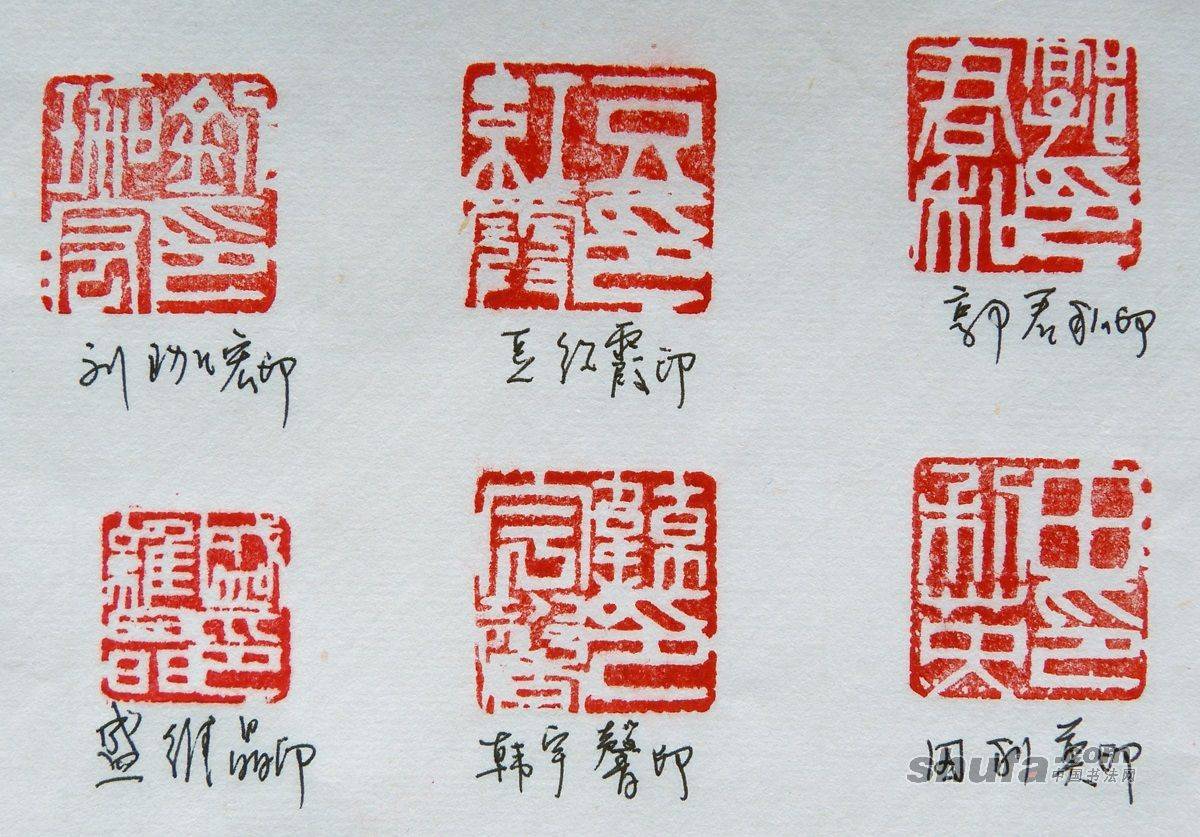 刘 宏印
红霞印
郭君 印
盛维晶印
韩宇馨印
利英印
shufa.com
中国书法网